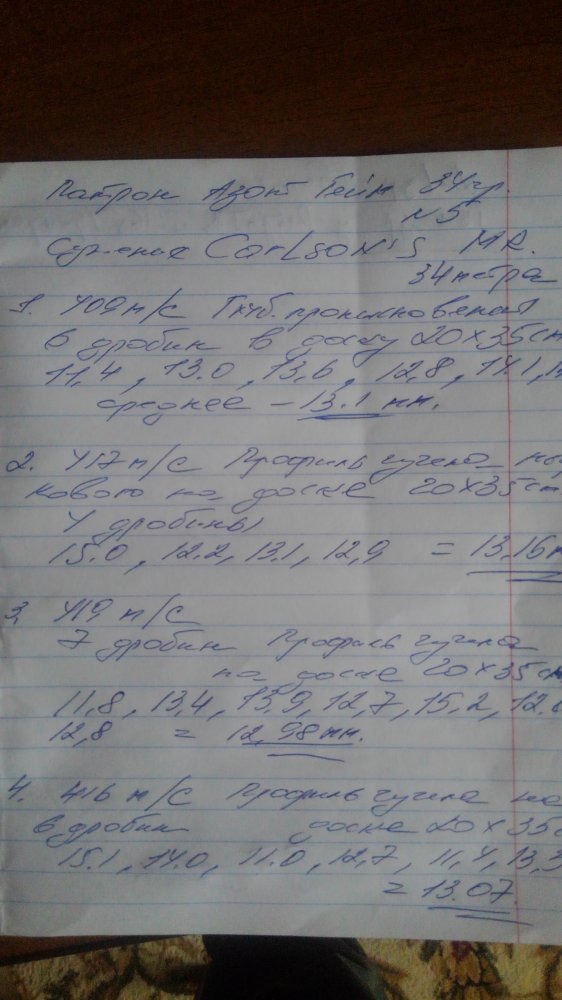 Патрон Азот Гейм 34гр.
N5
Сужение CarLSON'S MR.
34 метра
1. 409 м/с Глуб. проникновения
6 дробин в доску 20×35см
11,4, 13.0, 13,6, 12,8, 14,1,
среднее - 13.1 мм.
2. 417 м/с Профиль чучела
кового на доске 20×35см
4 дробины
15.0, 12.2, 13.1, 12,9 = 13.16
3. 419 м/с
7 дробин Профиль чучела
на доске 20×35см
11,8, 13,4, 13,9, 12,7, 15,2,
12,8 = 12,98 мм.
4. 416 м/с Профиль чучела на
6 дробин доске 20×35
15.1, 14.0, 11.0, 12,7, 11,4, 13,3
= 13.07.